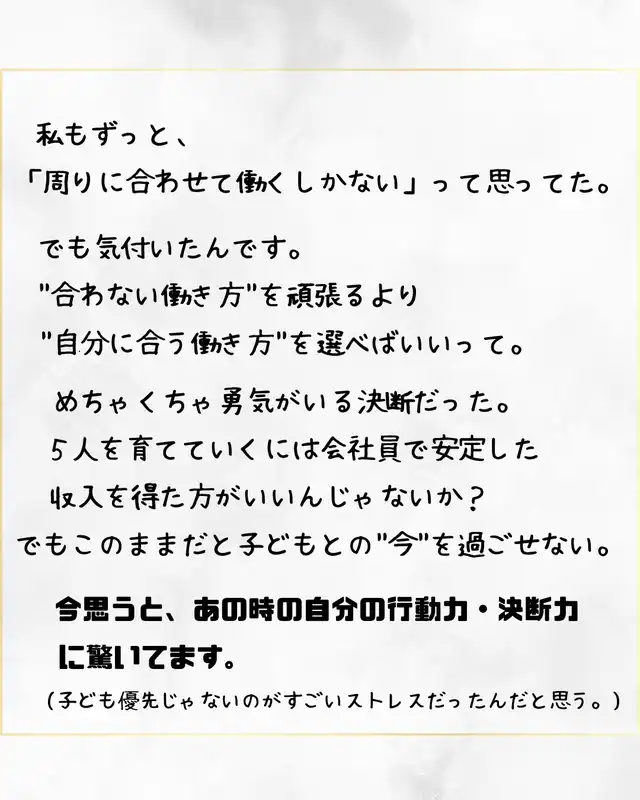 私もずっと、
「周りに合わせて働くしかない」って思ってた。
でも気付いたんです。
"合わない働き方"を頑張るより
"自分に合う働き方"を選べばいいって。
めちゃくちゃ勇気がいる決断だった。
5人を育てていくには会社員で安定した
収入を得た方がいいんじゃないか？
でもこのままだと子どもとの"今"を過ごせない。
今思うと、あの時の自分の行動力・決断力
に驚いてます。
(子ども優先じゃないのがすごいストレスだったんだと思う。)